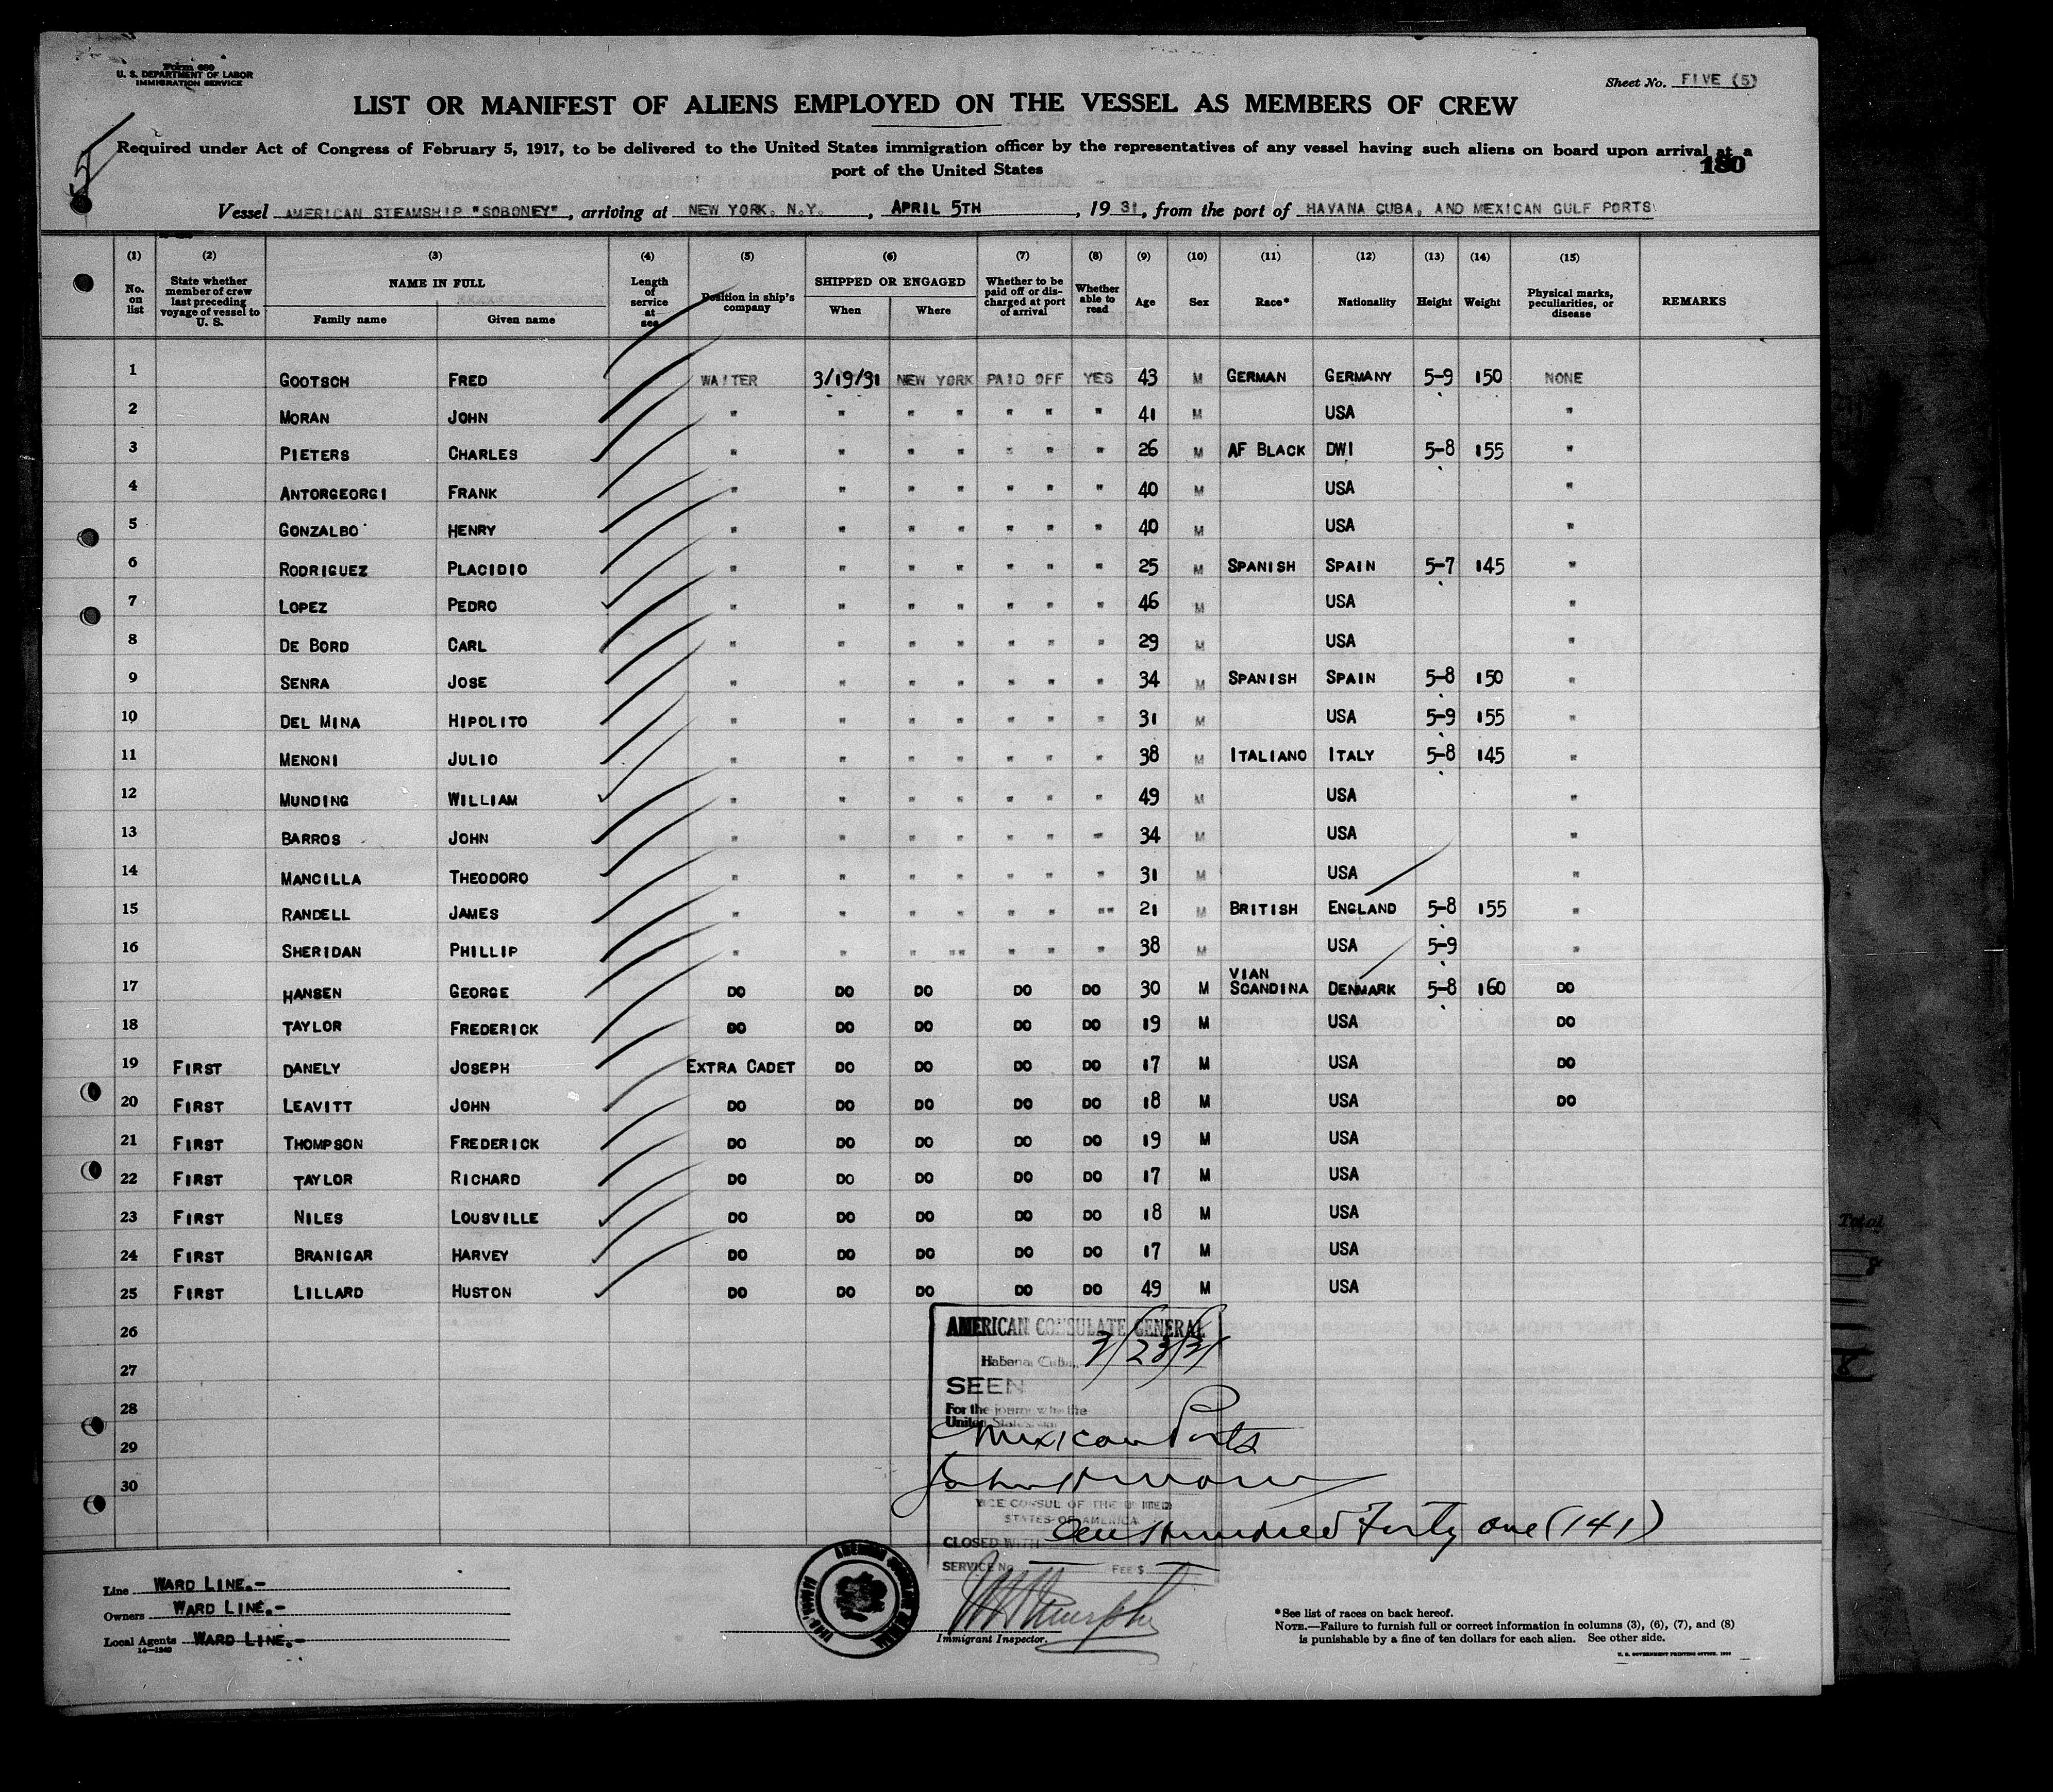 Form 680
U. S. DEPARTMENT OF LABOR
IMMIGRATION SERVICE
Sheet No. FIVE (5)
LIST OR MANIFEST OF ALIENS EMPLOYED ON THE VESSEL AS MEMBERS OF CREW
5
Required under Act of Congress of February 5, 1917, to be delivered to the United States immigration officer by the representatives of any vessel having such aliens on board upon arrival at a
port of the United States
180
Vessel AMERICAN STEAMSHIP "SOBONEY", arriving at NEW YORK. N.Y., APRIL 5TH, 1931, from the port of HAVANA CUBA, AND MEXICAN GULF PORTS
(1) (2) (3) (4) (5) (6) (7) (8) (9) (10) (11) (12) (13) (14) (15)
No. on list
State whether member of crew last preceding voyage of vessel to U. S.
NAME IN FULL
Family name Given name
Length of service at sea
Position in ship's company
SHIPPED OR ENGAGED
When Where
Whether to be paid off or discharged at port of arrival
Whether able to read
Age Sex Race* Nationality Height Weight
Physical marks, peculiarities, or disease
REMARKS
1 GOOTSCH FRED WAITER 3/19/31 NEW YORK PAID OFF YES 43 M GERMAN GERMANY 5-9 150 NONE
2 MORAN JOHN " " " " " " " 41 M USA "
3 PIETERS CHARLES " " " " " " " 26 M AF BLACK DWI 5-8 155 "
4 ANTORGEORGI FRANK " " " " " " " 40 M USA "
5 GONZALBO HENRY " " " " " " " 40 M USA "
6 RODRIGUEZ PLACIDIO " " " " " " " 25 M SPANISH SPAIN 5-7 145 "
7 LOPEZ PEDRO " " " " " " " 46 M USA "
8 DE BORD CARL " " " " " " " 29 M USA "
9 SENRA JOSE " " " " " " " 34 M SPANISH SPAIN 5-8 150 "
10 DEL MINA HIPOLITO " " " " " " " 31 M USA 5-9 155 "
11 MENONI JULIO " " " " " " " 38 M ITALIANO ITALY 5-8 145 "
12 MUNDING WILLIAM " " " " " " " 49 M USA "
13 BARROS JOHN " " " " " " " 34 M USA "
14 MANCILLA THEODORO " " " " " " " 31 M USA "
15 RANDELL JAMES " " " " " " "" 21 M BRITISH ENGLAND 5-8 155 "
16 SHERIDAN PHILLIP " " " "" " " " 38 M USA 5-9 "
17 HANSEN GEORGE DO DO DO DO DO 30 M VIAN SCANDINA DENMARK 5-8 160 DO
18 TAYLOR FREDERICK DO DO DO DO DO 19 M USA DO
19 FIRST DANELY JOSEPH EXTRA CADET DO DO DO DO 17 M USA DO
20 FIRST LEAVITT JOHN DO DO DO DO DO 18 M USA DO
21 FIRST THOMPSON FREDERICK DO DO DO DO DO 19 M USA
22 FIRST TAYLOR RICHARD DO DO DO DO DO 17 M USA
23 FIRST NILES LOUSVILLE DO DO DO DO DO 18 M USA
24 FIRST BRANIGAR HARVEY DO DO DO DO DO 17 M USA
25 FIRST LILLARD HUSTON DO DO DO DO DO 49 M USA
26
27
28
29
30
AMERICAN CONSULATE GENERAL
Habana, Cuba, 3/23/31
SEEN
For the journey to the
United States via
Mexican Ports
VICE CONSUL OF THE UNITED
STATES OF AMERICA
CLOSED WITH One Hundred Forty one (141)
SERVICE No. FEE $
Immigrant Inspector.
Line WARD LINE.-
Owners WARD LINE.-
Local Agents WARD LINE.-
14—1240
*See list of races on back hereof.
NOTE.—Failure to furnish full or correct information in columns (3), (6), (7), and (8)
is punishable by a fine of ten dollars for each alien. See other side.
U. S. GOVERNMENT PRINTING OFFICE: 1930
Total
8
8